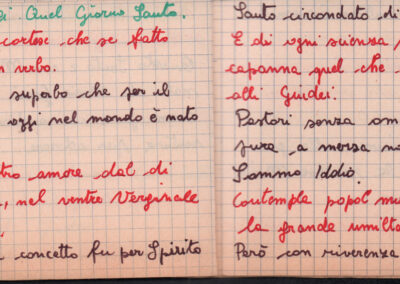 Quel Giorno Santo.
cortese che se fatto
verbo.
superbo che per il
oggi nel mondo è nato
amore dal di
nel ventre Verginale
concetto fu per Spirito
Santo circondato di
E di ogni scienza
capanna quel che
alli Giudei.
Pastori senza
pura a mezza
Sommo Iddio.
Contempla popol
la grande
Però con riverenza